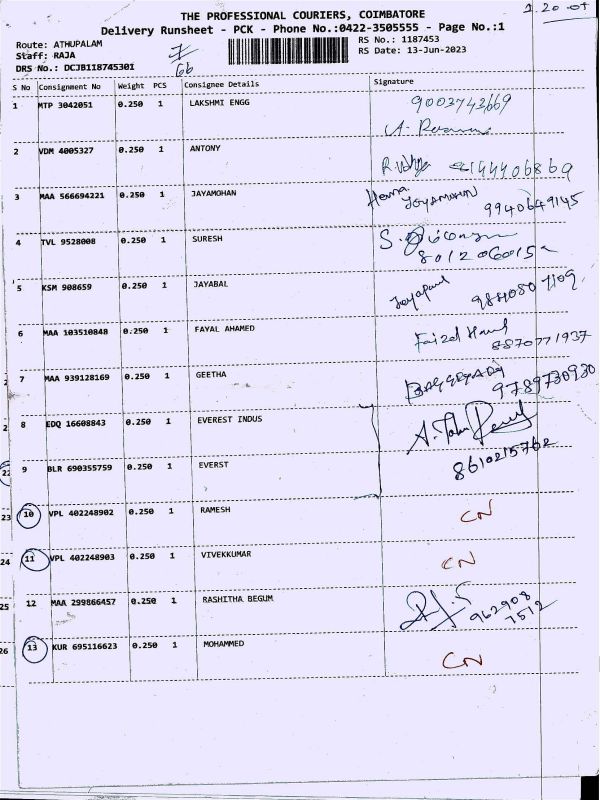 THE PROFESSIONAL COURIERS, COIMBATORE
Delivery Runsheet - PCK - Phone No.:0422-3505555 - Page No.:1
Route: ATHUPALAM
Staff: RAJA
DRS No.: DCJB118745301
RS No.: 1187453
RS Date: 13-Jun-2023
S No Consignment No Weight PCS Consignee Details Signature
1 MTP 3042051 0.250 1 LAKSHMI ENGG 9003743669
2 VDM 4005327 0.250 1 ANTONY
3 MAA 566694221 0.250 1 JAYAMOHAN Hema JAYAMOHAN
9940649145
4 TVL 9528008 0.250 1 SURESH
8012060152
5 KSM 908659 0.250 1 JAYABAL
6 MAA 103510848 0.250 1 FAYAL AHAMED
8870771937
7 MAA 939128169 0.250 1 GEETHA 9789730930
8 EDQ 16608843 0.250 1 EVEREST INDUS
9 BLR 690355759 0.250 1 EVERST 8610215762
23 10 VPL 402248902 0.250 1 RAMESH CN
24 11 VPL 402248903 0.250 1 VIVEKKUMAR CN
25 12 MAA 299866457 0.250 1 RASHITHA BEGUM 962908
7512
26 13 KUR 695116623 0.250 1 MOHAMMED CN